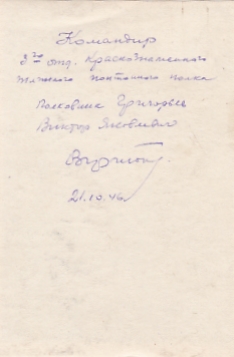 Командир
3го отд. Краснознаменного
понтонного полка
Полковник Григорьев
Виктор Яковлевич
21.10.46